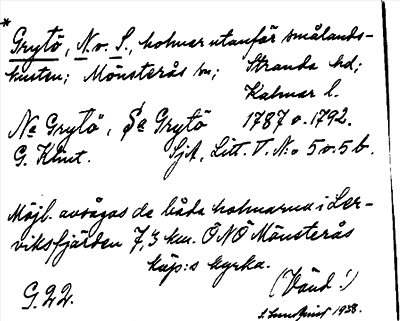 * Grytö, N. o. S., holmar utanför smålands-
kusten; Mönsterås sn; Stranda hd;
Kalmar l.
Na Grytö, Sa Grytö 1787 o. 1792.
G. Klint. SjA, Litt. T. No 5 o. 5 b.
Möjl. avsågas de båda holmarna i Ler-
viksfjärden 7,3 km. ÖNÖ Mönsterås
köp:s kyrka.
G. 22. (Vänd!)
1938.